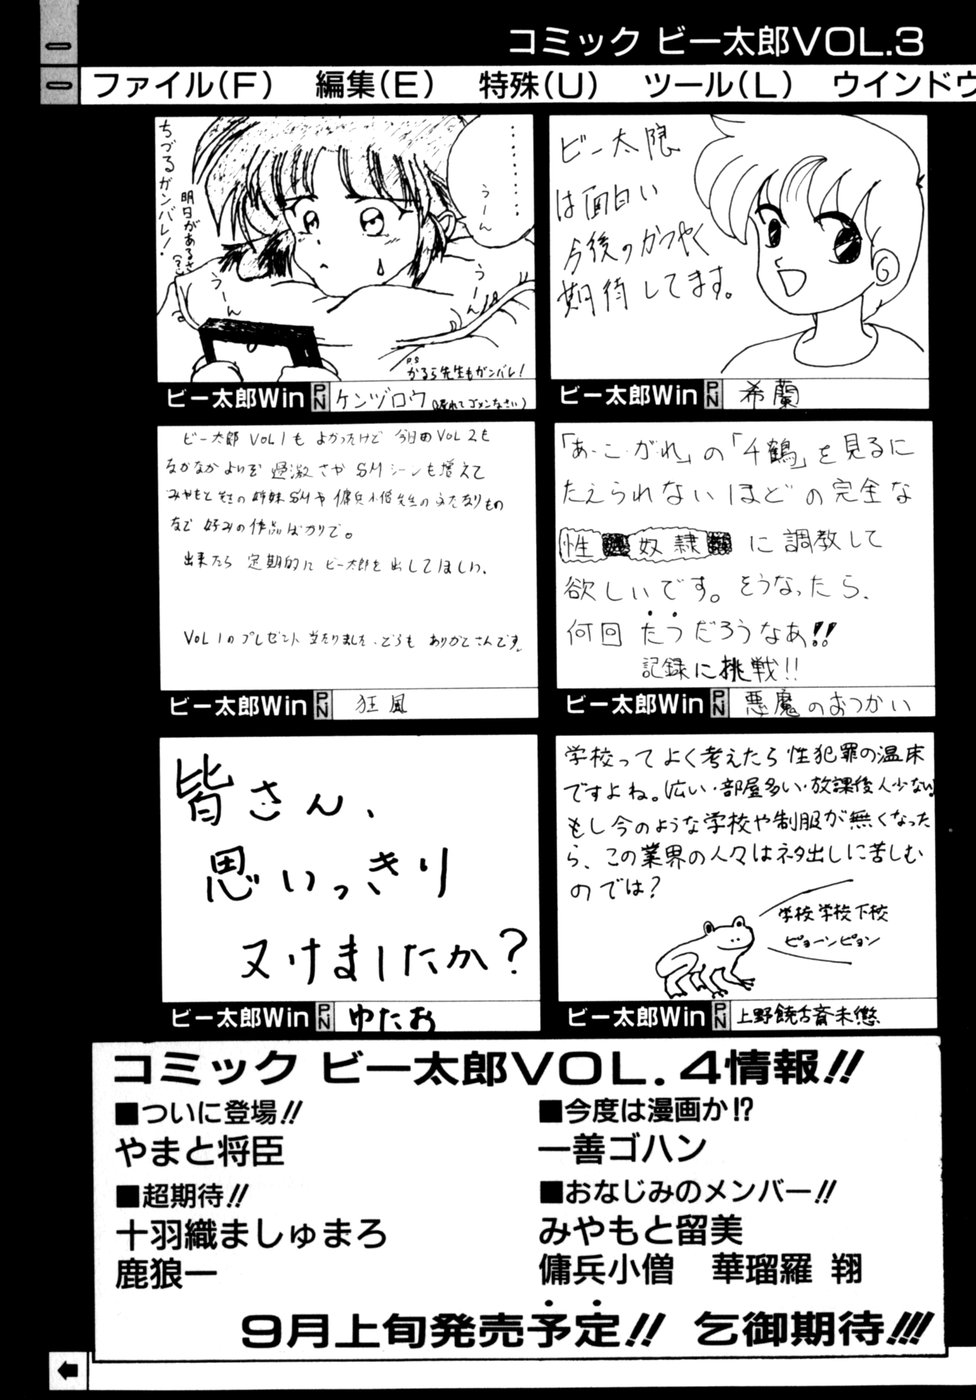 コミック ビー太郎VOL.3
ファイル(F) 編集(E) 特殊(U) ツール(L) ウインドウ
ちづるガンバレ!
明日があるさ
……
うーん
うーん
うーん
P.S
かるら先生もガンバレ!
ビー太郎Win PN ケンヅロウ(遅れてゴメンなさい)
ビー太郎
は面白い
今後のかつやく
期待してます。
ビー太郎Win PN 希蘭
ビー太郎 VOL1も よかったけど 今回のVOL2も
なかなかよいぞ 過激さやSMシーンも増えて
みやもと先生の姉妹SMや傭兵小僧先生のふたなりもの
など 好みの作品ばかりで。
出来たら 定期的に ビー太郎を出してほしい。
VOL1のプレゼント 当たりました。どうも ありがとさんです。
ビー太郎Win PN 狂風
「あ・こ・がれ」の「千鶴」を見るに
たえられないほどの完全な
性奴隷に調教して
欲しいです。そうなったら、
何回たつだろうなあ!!
記録に挑戦!!
ビー太郎Win PN 悪魔のおつかい
皆さん、
思いっきり
ヌけましたか?
ビー太郎Win PN ゆたお
学校ってよく考えたら性犯罪の温床
ですよね。広い・部屋多い・放課後人少ない
もし今のような学校や制服が無くなった
ら、この業界の人々はネタ出しに苦しむ
のでは?
学校学校下校
ピョーンピョン
ビー太郎Win PN 上野饒舌斎未悠
コミック ビー太郎VOL.4情報!!
■ついに登場!!
やまと将臣
■超期待!!
十羽織ましゅまろ
鹿狼一
■今度は漫画か!?
一善ゴハン
■おなじみのメンバー!!
みやもと留美
傭兵小僧 華瑠羅 翔
9月上旬発売予定!! 乞御期待!!!